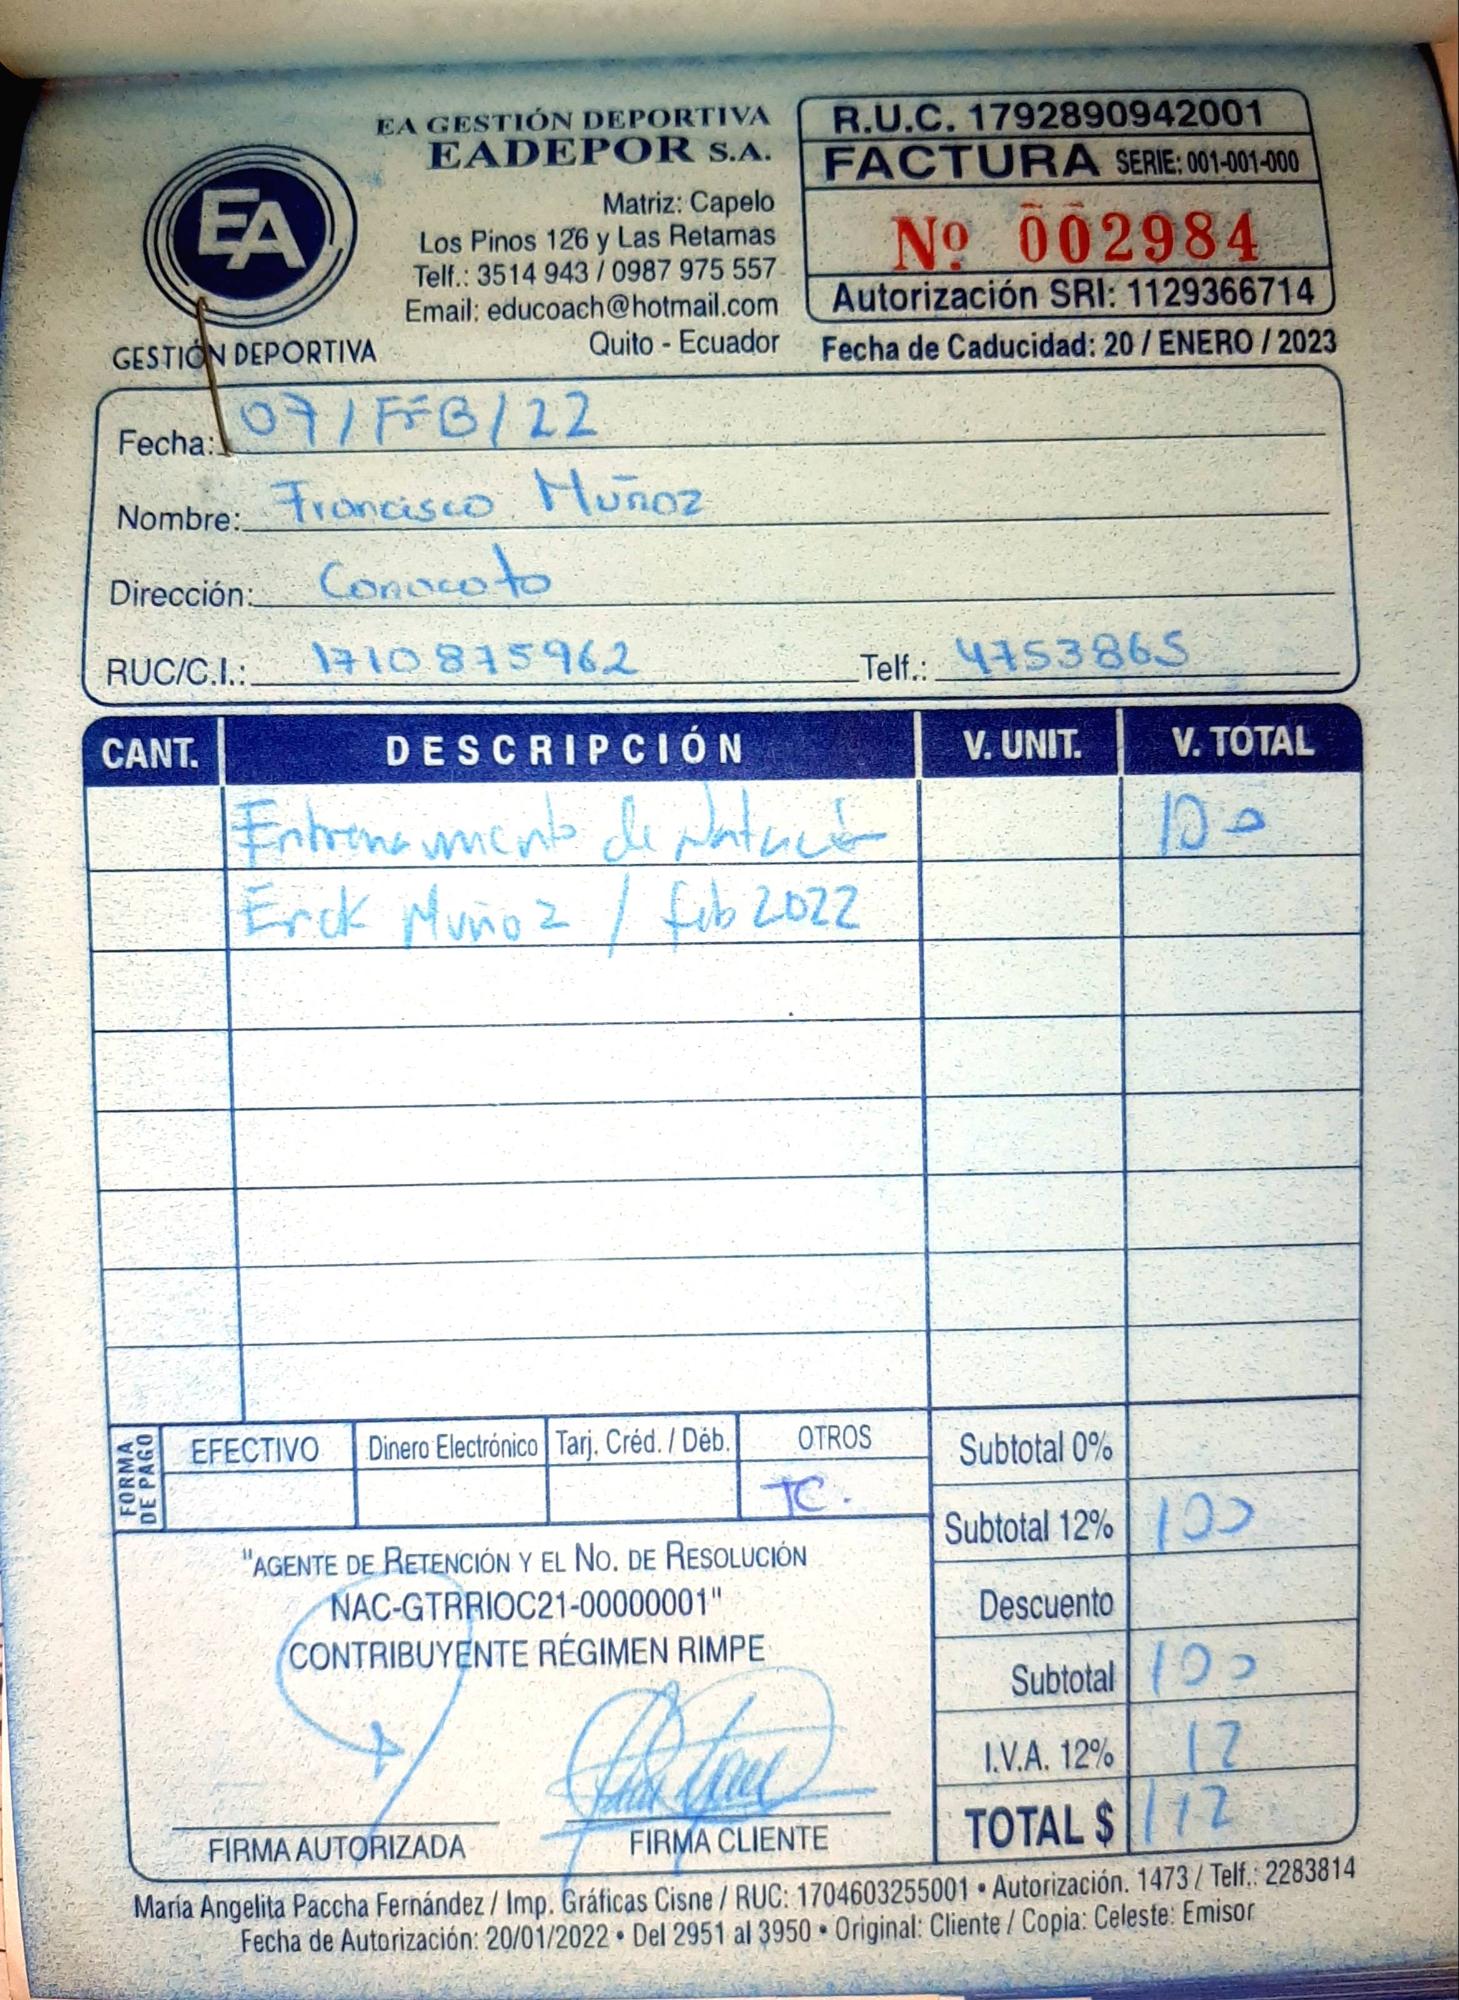 EA GESTIÓN DEPORTIVA
EADEPOR S.A.
Matriz: Capelo
Los Pinos 126 y Las Retamas
Telf.: 3514 943 / 0987 975 557
Email: educoach@hotmail.com
Quito - Ecuador
EA
GESTIÓN DEPORTIVA
R.U.C. 1792890942001
FACTURA SERIE: 001-001-000
Nº 002984
Autorización SRI: 1129366714
Fecha de Caducidad: 20 / ENERO / 2023
Fecha: 07/FEB/22
Nombre: Francisco Muñoz
Dirección: Conocoto
RUC/C.I.: 1710875962 Telf.: 4753865
CANT. DESCRIPCIÓN V. UNIT. V. TOTAL
Entrenamiento de Natación 100
Erick Muñoz / feb 2022
FORMA DE PAGO
EFECTIVO Dinero Electrónico Tarj. Créd. / Déb. OTROS
TC.
Subtotal 0%
Subtotal 12% 100
Descuento
Subtotal 100
I.V.A. 12% 12
TOTAL $ 112
"AGENTE DE RETENCIÓN Y EL NO. DE RESOLUCIÓN
NAC-GTRRIOC21-00000001"
CONTRIBUYENTE RÉGIMEN RIMPE
FIRMA AUTORIZADA FIRMA CLIENTE
María Angelita Paccha Fernández / Imp. Gráficas Cisne / RUC: 1704603255001 • Autorización. 1473 / Telf.: 2283814
Fecha de Autorización: 20/01/2022 • Del 2951 al 3950 • Original: Cliente / Copia: Celeste: Emisor